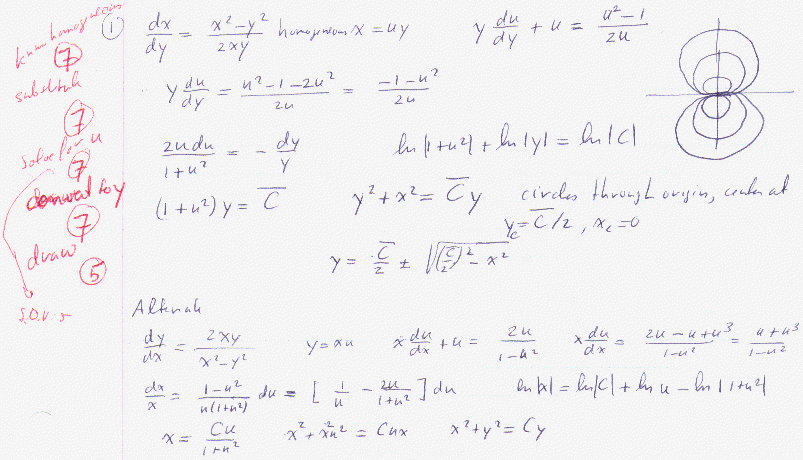 know homogeneous
7
substitute
7
solve for u
7
convert to y
7
draw
5
S.O.V. 5
① dx/dy = (x² − y²)/(2xy) homogeneous x = uy y du/dy + u = (u² − 1)/(2u)
y du/dy = (u² − 1 − 2u²)/(2u) = (−1 − u²)/(2u)
2u du/(1 + u²) = − dy/y ln|1 + u²| + ln|y| = ln|C|
(1 + u²) y = C̅ y² + x² = C̅y circles through origin, center at
y_c = C̅/2, x_c = 0
y = C̅/2 ± √((C̅/2)² − x²)
Alternate
dy/dx = 2xy/(x² − y²) y = xu x du/dx + u = 2u/(1 − u²) x du/dx = (2u − u + u³)/(1 − u²) = (u + u³)/(1 − u²)
dx/x = (1 − u²)/(u(1 + u²)) du = [1/u − 2u/(1 + u²)] du ln|x| = ln|C| + ln u − ln|1 + u²|
x = Cu/(1 + u²) x² + x²u² = Cux x² + y² = Cy